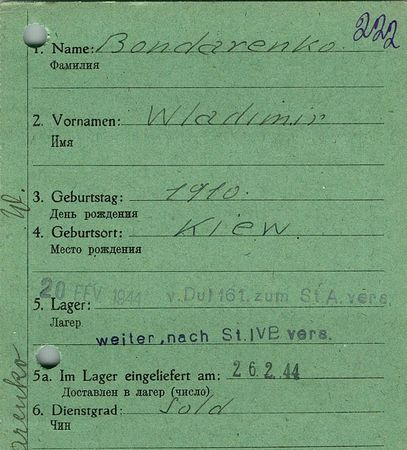 222
1. Name: Bondarenko
Фамилия
2. Vornamen: Wladimir
Имя
3. Geburtstag: 1910.
День рождения
4. Geburtsort: Kiew
Место рождения
20 FEV. 1944 v. Dul 161. zum St. A. vers.
5. Lager:
Лагер
weiter, nach St. IVB vers.
5a. Im Lager eingeliefert am: 26.2.44
Доставлен в лагер (число)
6. Dienstgrad: Sold
Чин
W.
arenko